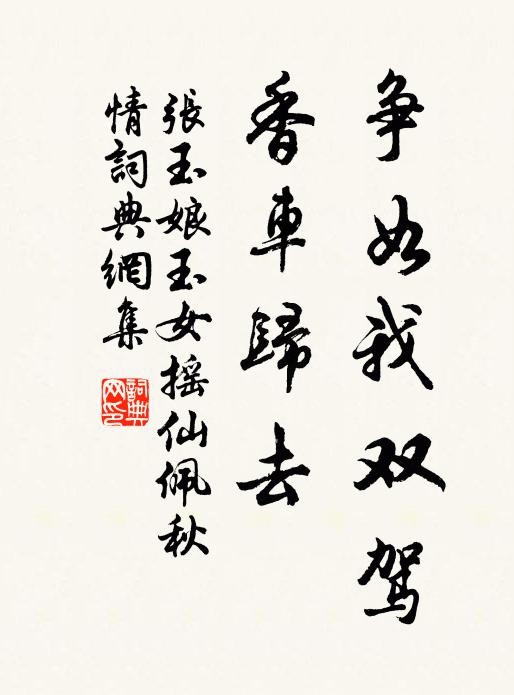 争如我双驾
香車歸去
張玉娘玉女摇仙佩秋
情詞典網集
詞典
网印